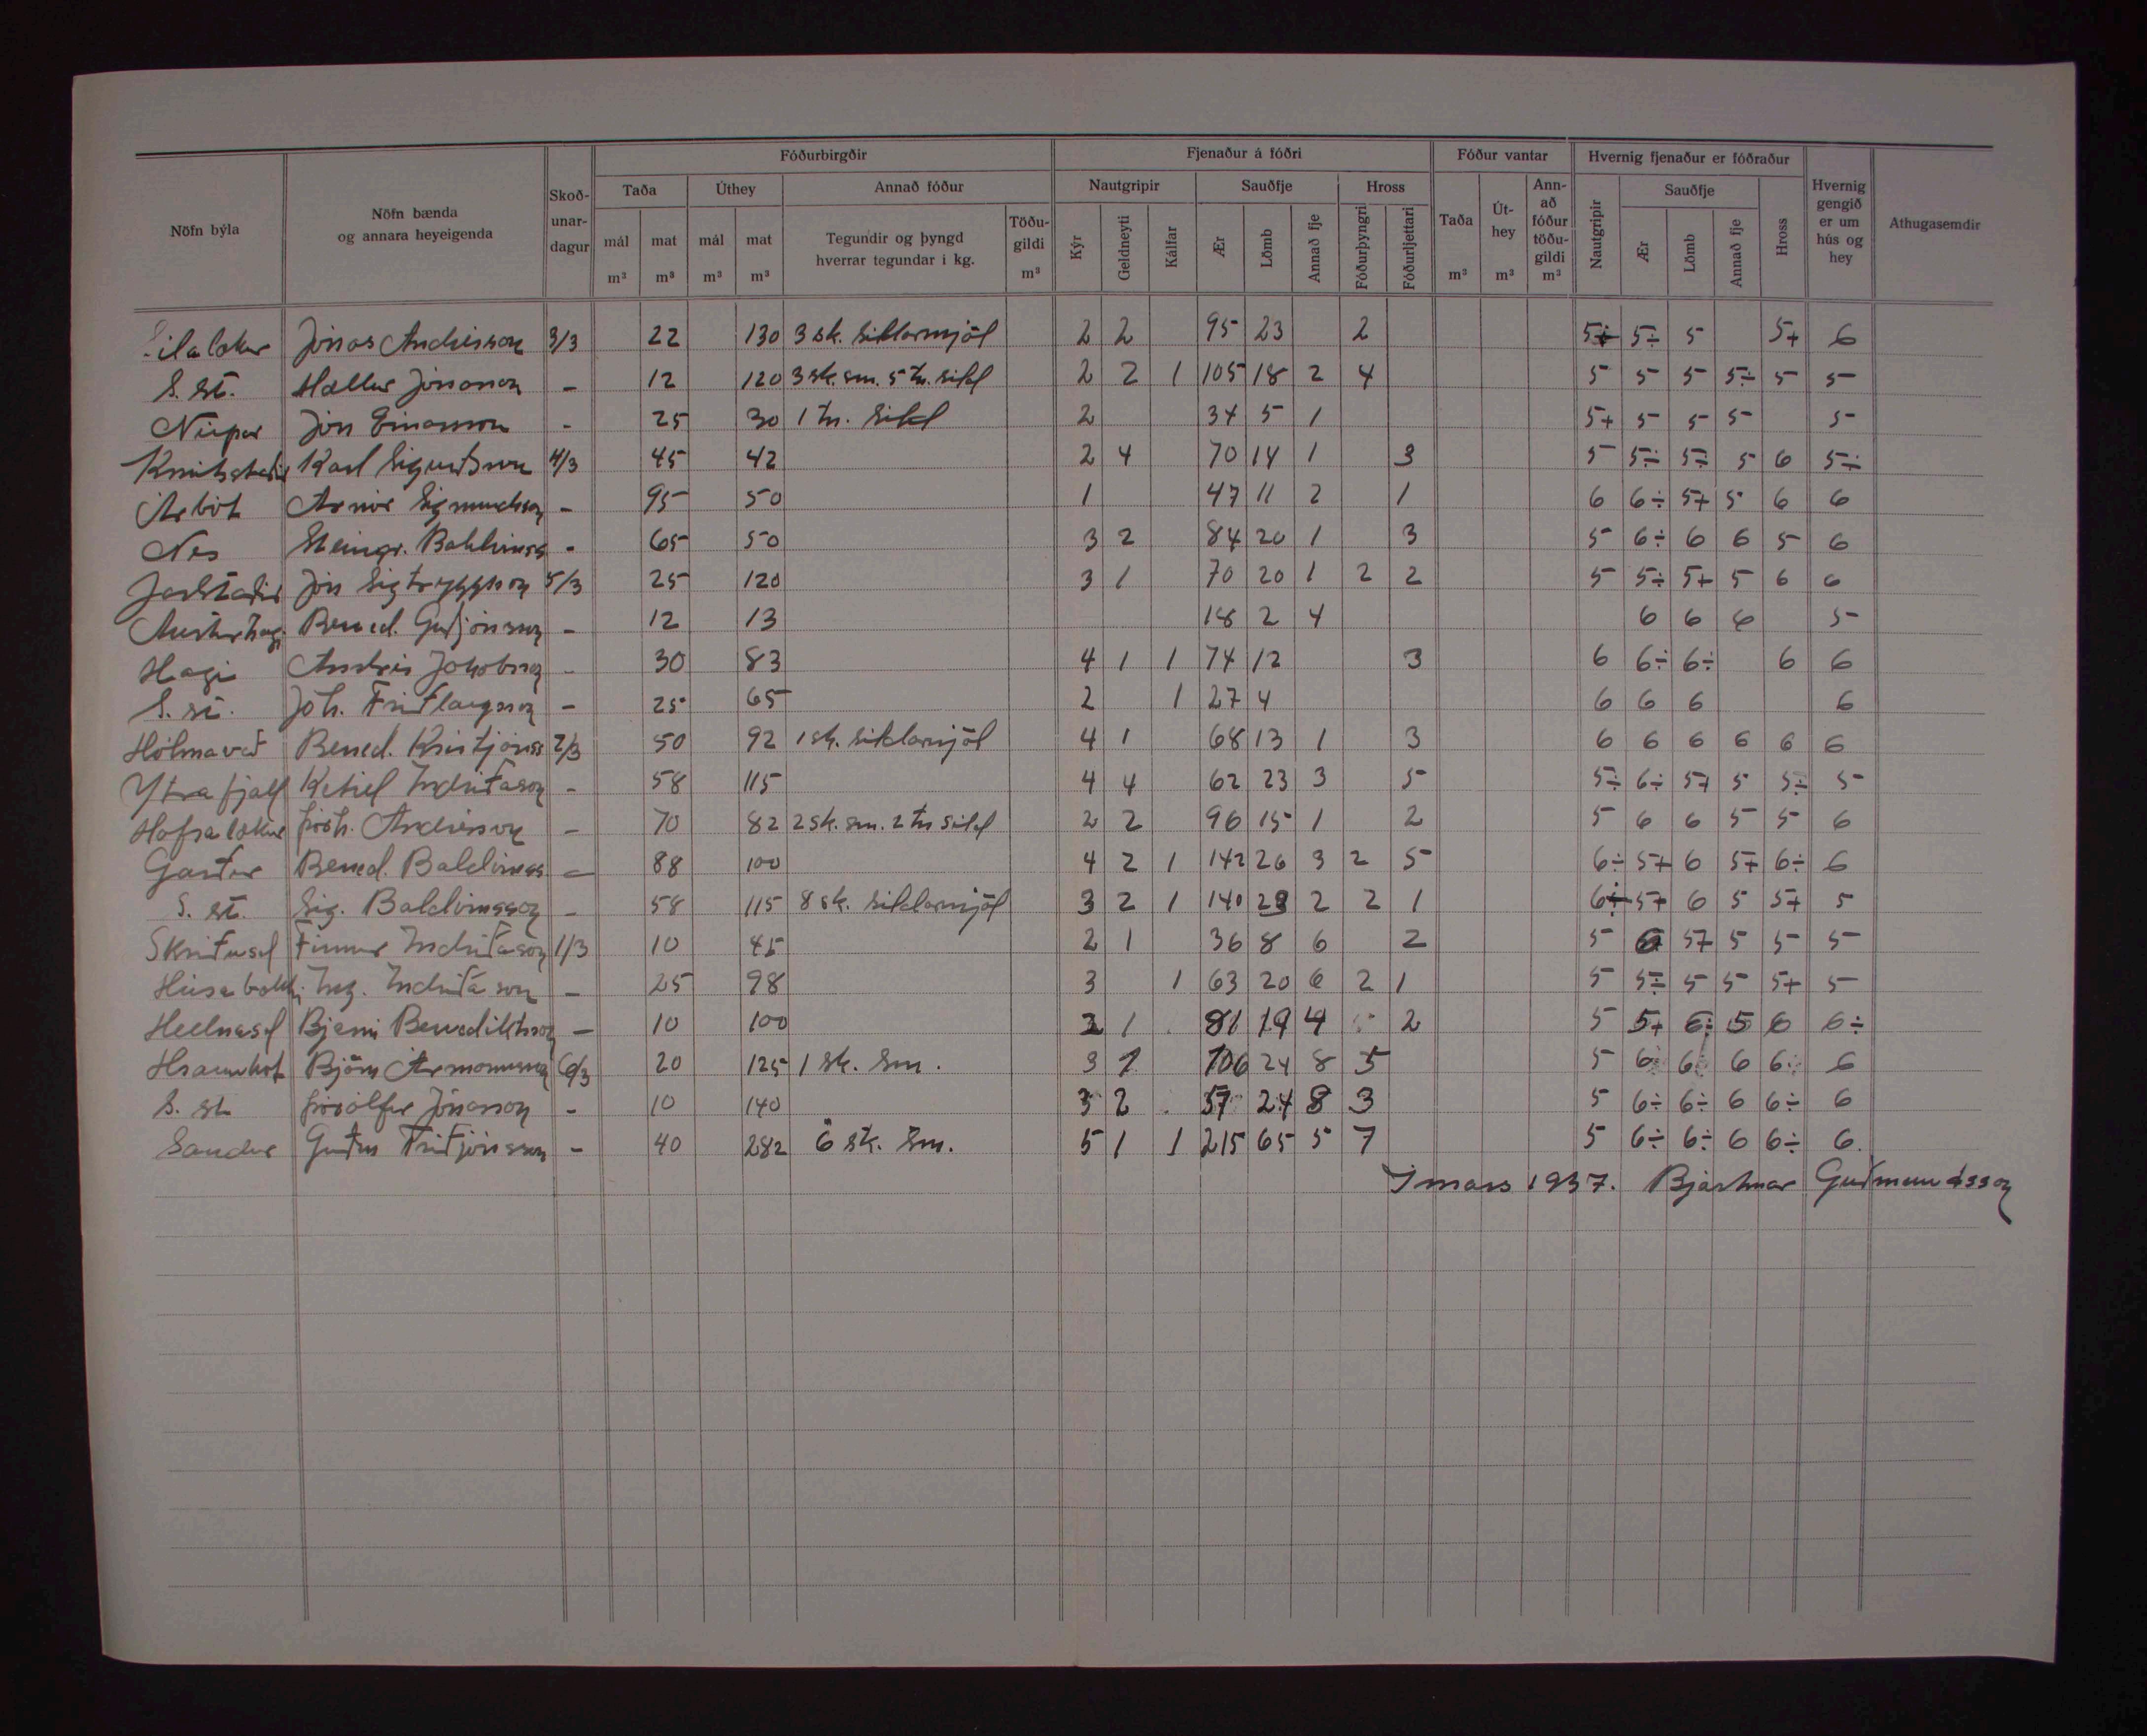 Fóðurbirgðir Fjenaður á fóðri Fóður vantar Hvernig fjenaður er fóðraður
Nöfn býla Nöfn bænda og annara heyeigenda Skoð-unar-dagur Taða Úthey Annað fóður Nautgripir Sauðfje Hross Taða Út-hey Ann-að fóður töðu-gildi m³ Nautgripir Sauðfje Hross Hvernig gengið er um hús og hey Athugasemdir
mál m³ mat m³ mál m³ mat m³ Tegundir og þyngd hverrar tegundar í kg. Töðu-gildi m³ Kýr Geldneyti Kálfar Ær Lömb Annað fje Fóðurþyngri Fóðurljettari m³ m³ Ær Lömb Annað fje
Sílalækur Jónas Andrésson 3/3 22 130 3 sk. síldarmjöl 2 2 95 23 2 5÷ 5÷ 5 5+ 6
S. st. Hallur Jónasson – 12 120 3 sk. sm. 5 tn. síld 2 2 1 105 18 2 4 5 5 5 5÷ 5 5
Núpar Jón Einarsson - 25 30 1 tn. síld 2 34 5 1 5+ 5 5 5 5
Knútsstaðir Karl Sigurðsson 4/3 45 42 2 4 70 14 1 3 5 5÷ 5÷ 5 6 5÷
Árbót Arnór Sigmundsson – 95 50 1 47 11 2 1 6 6÷ 5+ 5 6 6
Nes Steingr. Baldvinss - 65 50 3 2 84 20 1 3 5 6÷ 6 6 5 6
Jarlstaðir Jón Sigtryggsson 5/3 25 120 3 1 70 20 1 2 2 5 5÷ 5+ 5 6 6
Austurhagi Bened. Guðjónsson – 12 13 18 2 4 6 6 6 5
Hagi Andrés Jakobsson - 30 83 4 1 1 74 12 3 6 6÷ 6÷ 6 6
S. st. Jóh. Friðlaugsson – 25 65 2 1 27 4 6 6 6 6
Hólmavað Bened. Kristjánss 2/3 50 92 1 sk. síldarmjöl 4 1 68 13 1 3 6 6 6 6 6 6
Ytrafjall Ketill Indriðason - 58 115 4 4 62 23 3 5 5÷ 6÷ 5+ 5 5÷ 5
Hafralækur Þórh. Andrésson – 70 82 2 sk. sm. 2 tn síld 2 2 96 15 1 2 5 6 6 5 5 6
Garður Bened. Baldvinss. – 88 100 4 2 1 142 26 3 2 5 6÷ 5+ 6 5+ 6÷ 6
S. st. Sig. Baldvinsson - 58 115 8 sk. síldarmjöl 3 2 1 140 28 2 2 1 6÷ 5+ 6 5 5+ 5
Skriðusel Finnur Indriðason 1/3 10 45 2 1 36 8 6 2 5 6 5+ 5 5 5
Húsabakki Ing. Indriðason – 25 98 3 1 63 20 6 2 1 5 5÷ 5 5 5+ 5
Hellnasel Bjarni Benediktsson – 10 100 3 1 81 19 4 2 5 5+ 6÷ 5 6 6÷
Hraunkot Björn Ármannsson 6/3 20 125 1 sk. sm. 3 1 106 24 8 5 5 6 6 6 6 6
S. st. Þórólfur Jónasson - 10 140 3 2 57 24 8 3 5 6÷ 6÷ 6 6÷ 6
Sandur Guðm Friðjónsson – 40 282 6 sk. sm. 5 1 1 215 65 5 7 5 6÷ 6÷ 6 6÷ 6
Í mars 1937. Bjartmar Guðmundsson